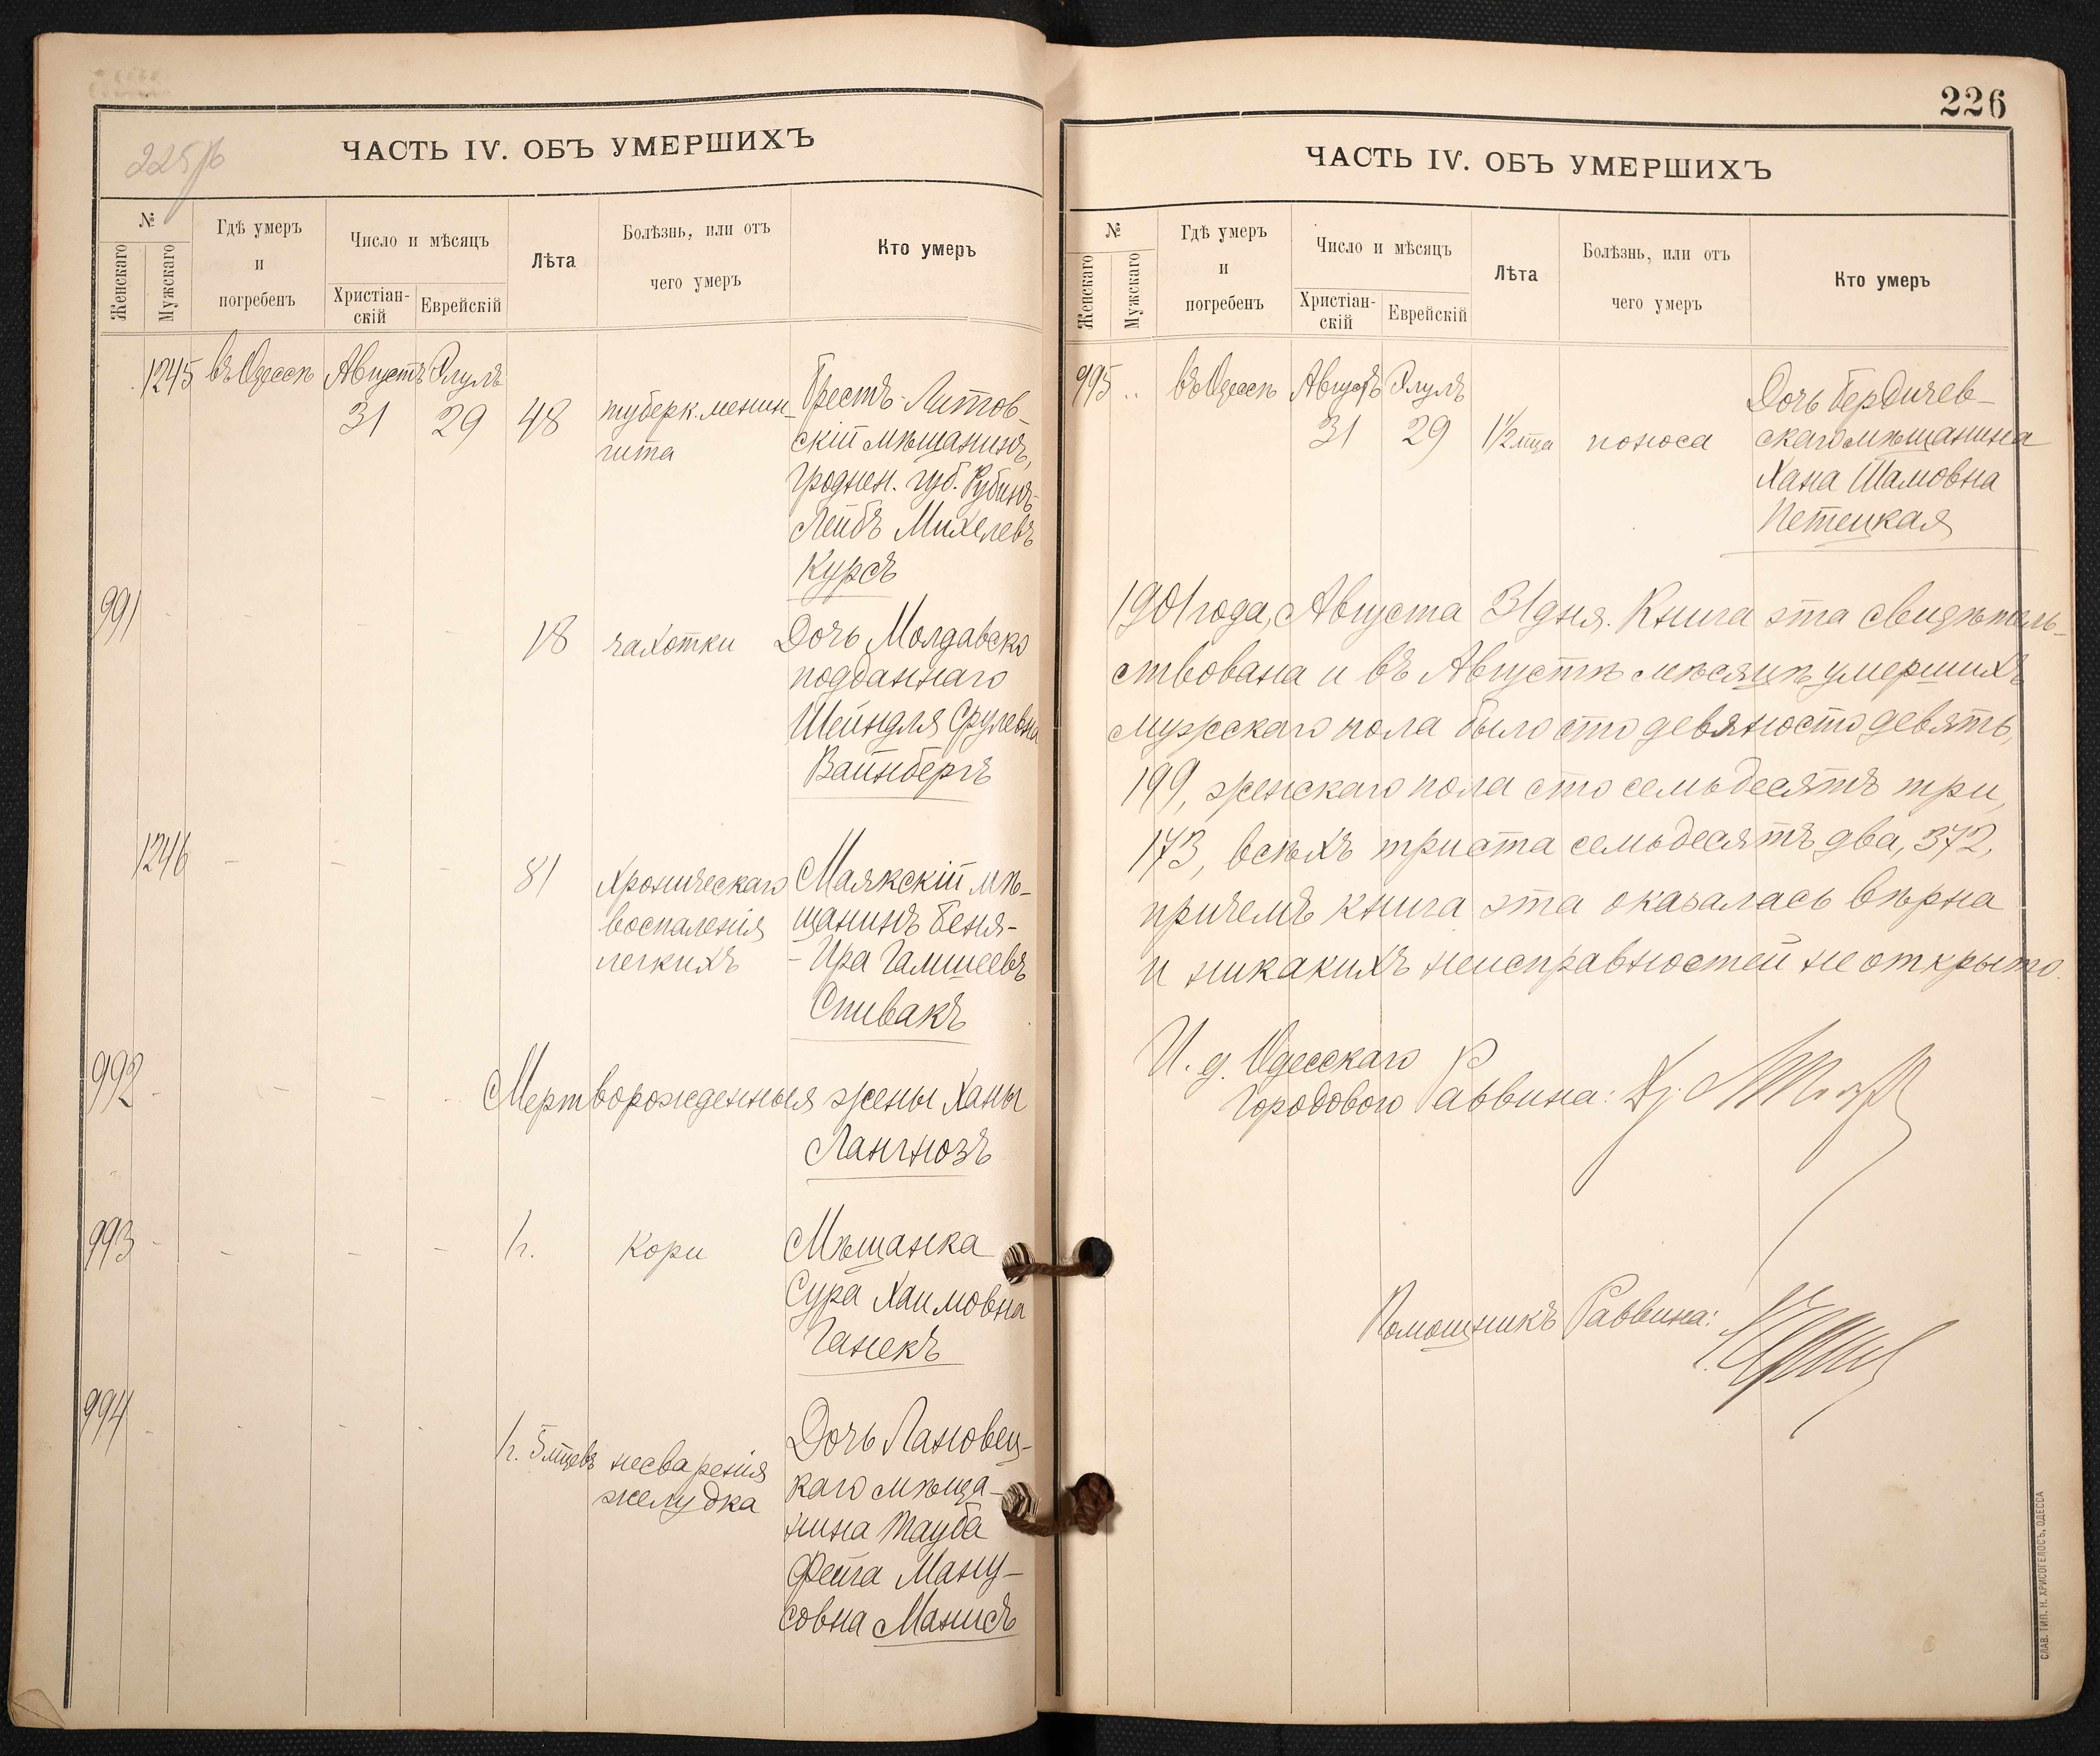 225
ЧАСТЬ IV. ОБЪ УМЕРШИХЪ
№
Женскаго
Мужскаго
Гдѣ умеръ
и
погребенъ
Число и мѣсяцъ
Христіан-
скій
Еврейскій
Лѣта
Болѣзнь, или отъ
чего умеръ
Кто умеръ
1245 въ Одессѣ Августъ Элулъ
31 29 48 туберк. менин-
гита
Брестъ-Литов-
скій мѣщанинъ,
Гроднен. губ. Рубинъ-
Лейбъ Михелевъ
Курсъ
991 - - - -
18 чахотки Дочь Молдавско
подданнаго
Шейндля Срулевна
Вайнбергъ
1246 - - -
81 хроническаго
воспаленія
легкихъ
Маякскій мѣ-
щанинъ Беня-
- Ира Галшеевъ
Спивакъ
992 - - - -
Мертворожденныя жены Ханы
Лангнозъ
993 - - - -
1г. Кори Мѣщанка
Сура Хаимовна
Ганекъ
994 - - - -
1г. 5 мцевъ несваренія
желудка
Дочь Лановец-
каго мѣща-
нина Тауба
Фейга Ману-
совна Манисъ
226
ЧАСТЬ IV. ОБЪ УМЕРШИХЪ
№
Женскаго
Мужскаго
Гдѣ умеръ
и
погребенъ
Число и мѣсяцъ
Христіан-
скій
Еврейскій
Лѣта
Болѣзнь, или отъ
чего умеръ
Кто умеръ
995 .. въ Одессѣ Августъ Элулъ
31 29 1½ мца поноса
Дочь Бердичев-
скаго мѣщанина
Хана Шамовна
Петецкая
1901 года, Августа 31 дня. Книга эта свидѣтель-
ствована и въ Августѣ мѣсяцѣ умершихъ
мужскаго пола было сто девяносто девять,
199, женскаго пола сто семьдесятъ три,
173, всѣхъ триста семьдесятъ два, 372,
причемъ книга эта оказалась вѣрна
и никакихъ неисправностей не открыто.
И. д. Одесскаго
Городового Раввина:
Помощникъ Раввина:
СЛАВ. ТИП. Н. ХРИСОГЕЛОСЪ, ОДЕССА